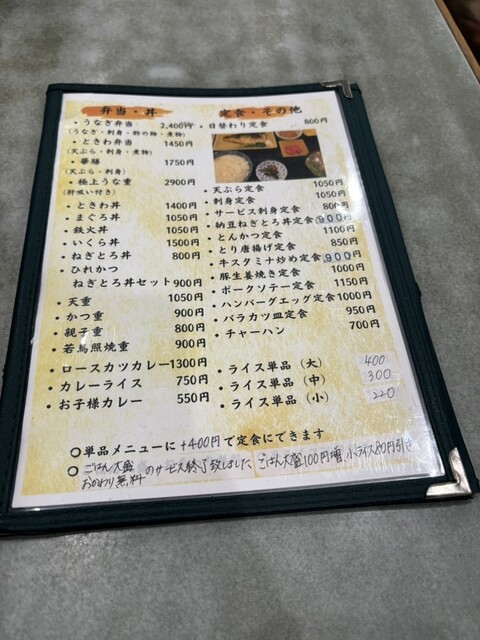 弁当・丼
・うなぎ弁当 2,400円
(うなぎ・刺身・酢の物・煮物)
・ときわ弁当 1450円
(天ぷら・刺身・煮物)
・華膳 1750円
(天ぷら・刺身)
・極上うな重 2900円
(肝吸い付き)
・ときわ丼 1400円
・まぐろ丼 1050円
・鉄火丼 1050円
・いくら丼 1500円
・ねぎとろ丼 800円
・ひれかつ
ねぎとろ丼セット 900円
・天重 1050円
・かつ重 900円
・親子重 800円
・若鳥照焼重 900円
・ロースカツカレー 1300円
・カレーライス 750円
・お子様カレー 550円
定食・その他
・日替わり定食 800円
・天ぷら定食 1050円
・刺身定食 1050円
・サービス刺身定食 800円
・納豆ねぎとろ定食 900円
・とんかつ定食 1100円
・とり唐揚げ定食 850円
・牛スタミナ炒め定食 900円
・豚生姜焼き定食 1000円
・ポークソテー定食 1150円
・ハンバーグエッグ定食 1000円
・バラカツ皿定食 950円
・チャーハン 700円
・ライス単品(大) 400
・ライス単品(中) 300
・ライス単品(小) 220
○単品メニューに +400円で定食にできます
○ごはん大盛 おかわり無料 のサービス終了致しました、ごはん大盛100円増、小ライス80円引き